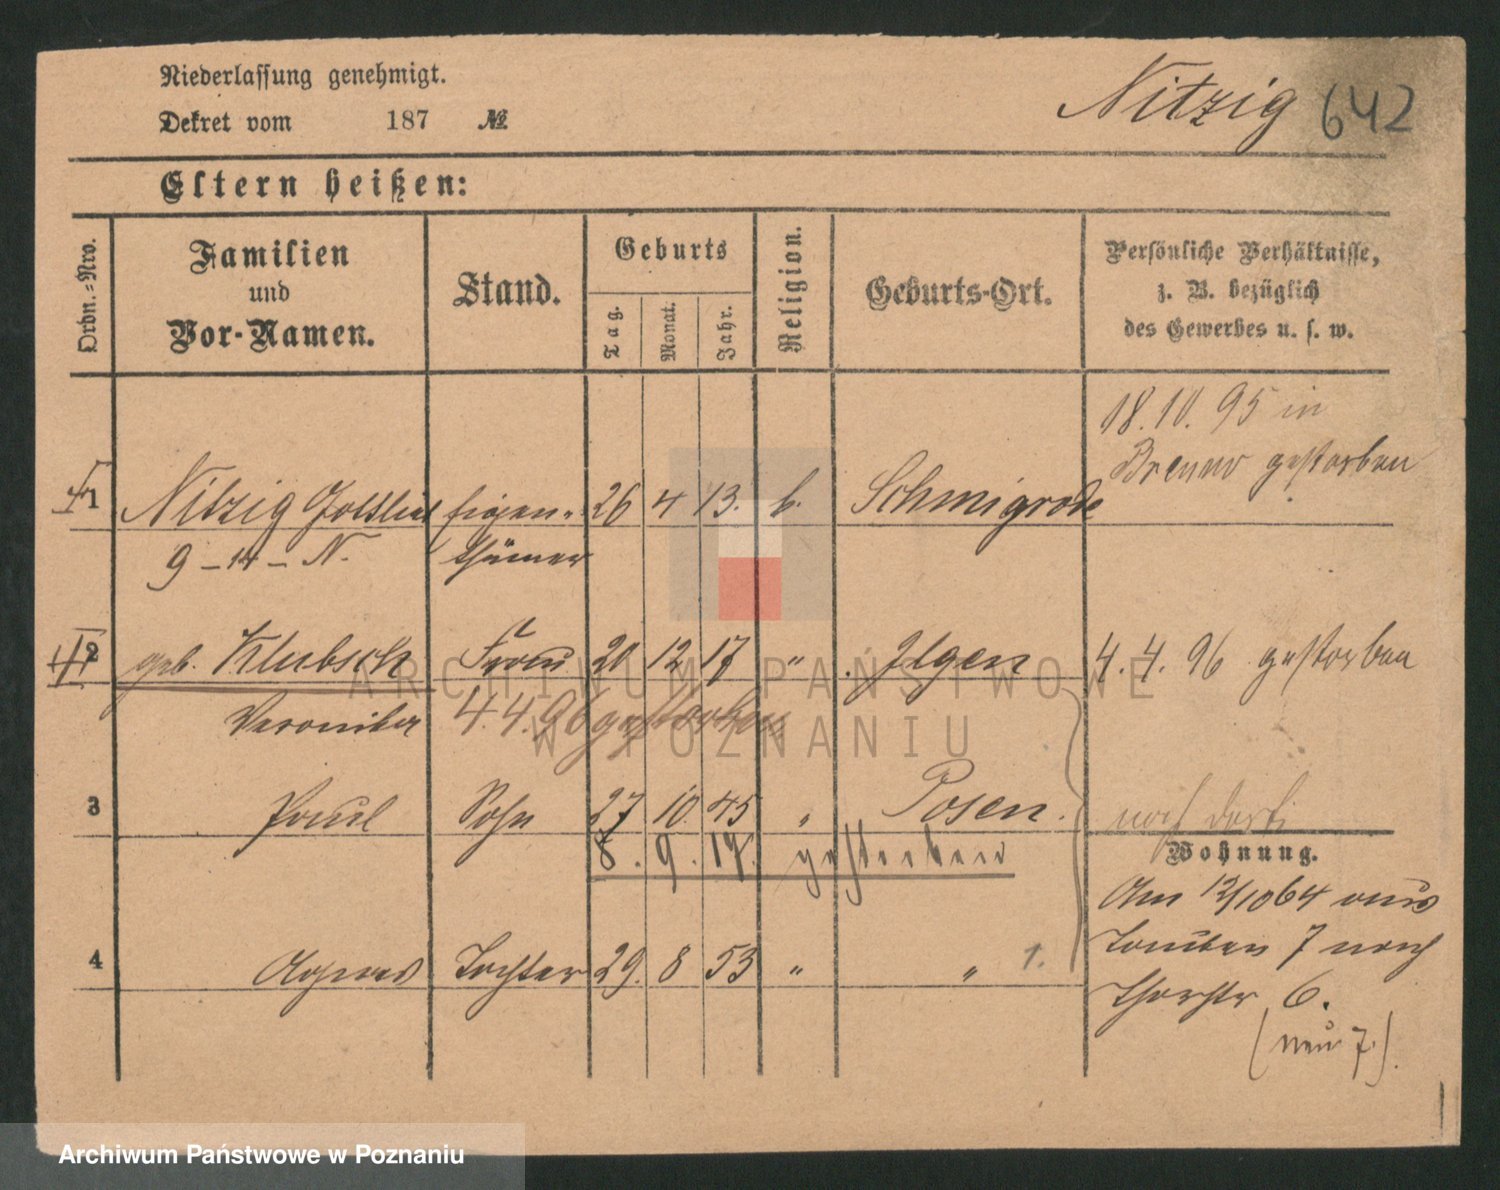 Niederlassung genehmigt.
Dekret vom 187 №
Nitzig 642
Eltern heißen:
Ordn.-Nro.
Familien und Vor-Namen.
Stand.
Geburts
Tag.
Monat.
Jahr.
Religion.
Geburts-Ort.
Persönliche Verhältnisse,
z. B. bezüglich
des Gewerbes u. s. w.
18. 10. 95 in
gestorben
1 Nitzig Gottlieb Eigen- 26 4 13. k. Schmigrode
9 - 14 - N. thümer
2 geb. Klubsch Frau 20 12 17 " Ilgen 4. 4. 96 gestorben
Veronika 4. 4. 96 gestorben
3 Paul Sohn 27 10 45 " Posen.
8. 9. 17. gestorben
Wohnung.
Am 12/10 64 aus
Tauben 7 nach
4 Agnes Tochter 29. 8 53 " " 1.
Thorstr 6.
(neu 7.)
ARCHIWUM PAŃSTWOWE
W POZNANIU
Archiwum Państwowe w Poznaniu